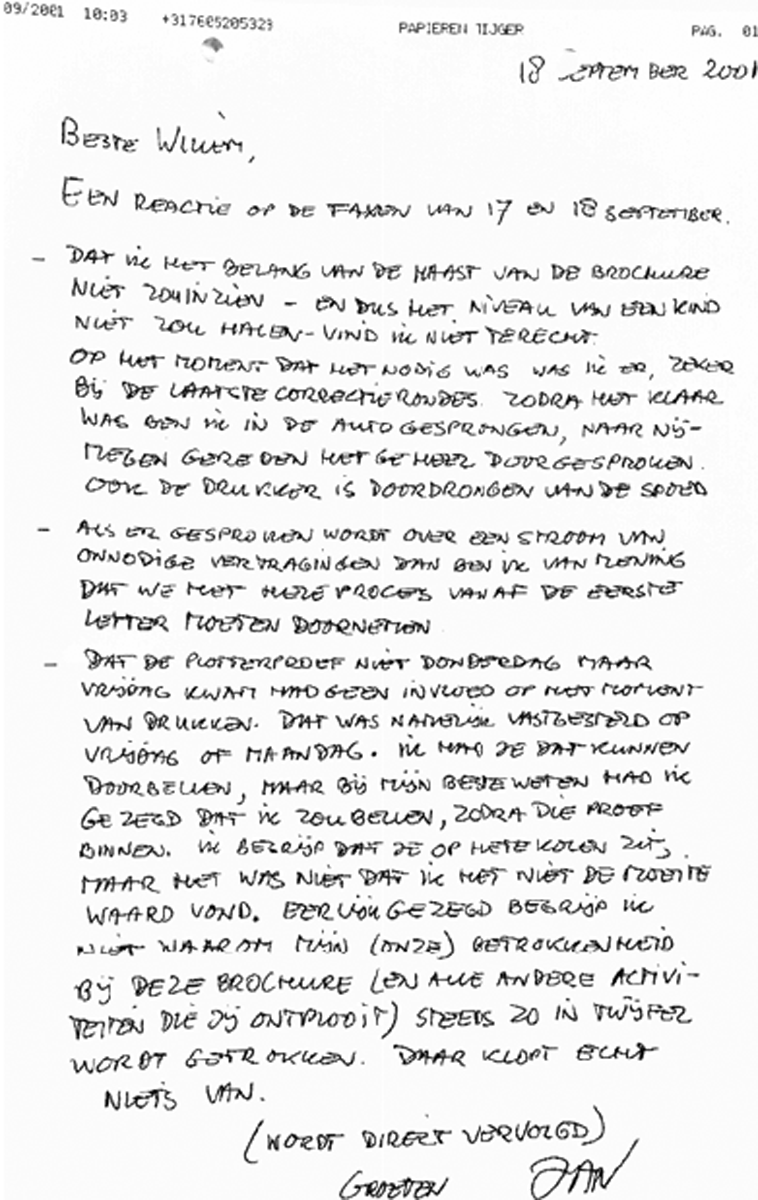 09/2001 10:03 +317605205329 PAPIEREN TIJGER PAG. 01
18 SEPTEMBER 2001
BESTE WILLEM,
EEN REACTIE OP DE FAXEN VAN 17 EN 18 SEPTEMBER.
- DAT IK HET BELANG VAN DE HAAST VAN DE BROCHURE
NIET ZOU INZIEN - EN DUS HET NIVEAU VAN EEN KIND
NIET ZOU HALEN - VIND IK NIET TERECHT.
OP HET MOMENT DAT HET NODIG WAS WAS IK ER, ZEKER
BIJ DE LAATSTE CORRECTIERONDES. ZODRA HET KLAAR
WAS BEN IK IN DE AUTO GESPRONGEN, NAAR NIJ-
MEGEN GEREDEN HET GEHEEL DOORGESPROKEN.
OOK DE DRUKKER IS DOORDRONGEN VAN DE SPOED
- ALS ER GESPROKEN WORDT OVER EEN STROOM VAN
ONNODIGE VERTRAGINGEN DAN BEN IK VAN MENING
DAT WE HET HELE PROCES VANAF DE EERSTE
LETTER MOETEN DOORNEMEN
- DAT DE PLOTTERPROEF NIET DONDERDAG MAAR
VRIJDAG KWAM HAD GEEN INVLOED OP HET MOMENT
VAN DRUKKEN. DAT WAS NAMELIJK VASTGESTELD OP
VRIJDAG OF MAANDAG. IK HAD JE DAT KUNNEN
DOORBELLEN, MAAR BIJ MIJN BESTE WETEN HAD IK
GEZEGD DAT IK ZOU BELLEN, ZODRA DIE PROEF
BINNEN. IK BEGRIJP DAT JE OP HETE KOLEN ZIT,
MAAR HET WAS NIET DAT IK HET NIET DE MOEITE
WAARD VOND. EERLIJK GEZEGD BEGRIJP IK
NIET WAAROM MIJN (ONZE) BETROKKENHEID
BIJ DEZE BROCHURE (EN ALLE ANDERE ACTIVI-
TEITEN DIE JIJ ONTPLOOIT) STEEDS ZO IN TWIJFEL
WORDT GETROKKEN. DAAR KLOPT ECHT
NIETS VAN.
(WORDT DIRECT VERVOLGD)
GROETEN JAN